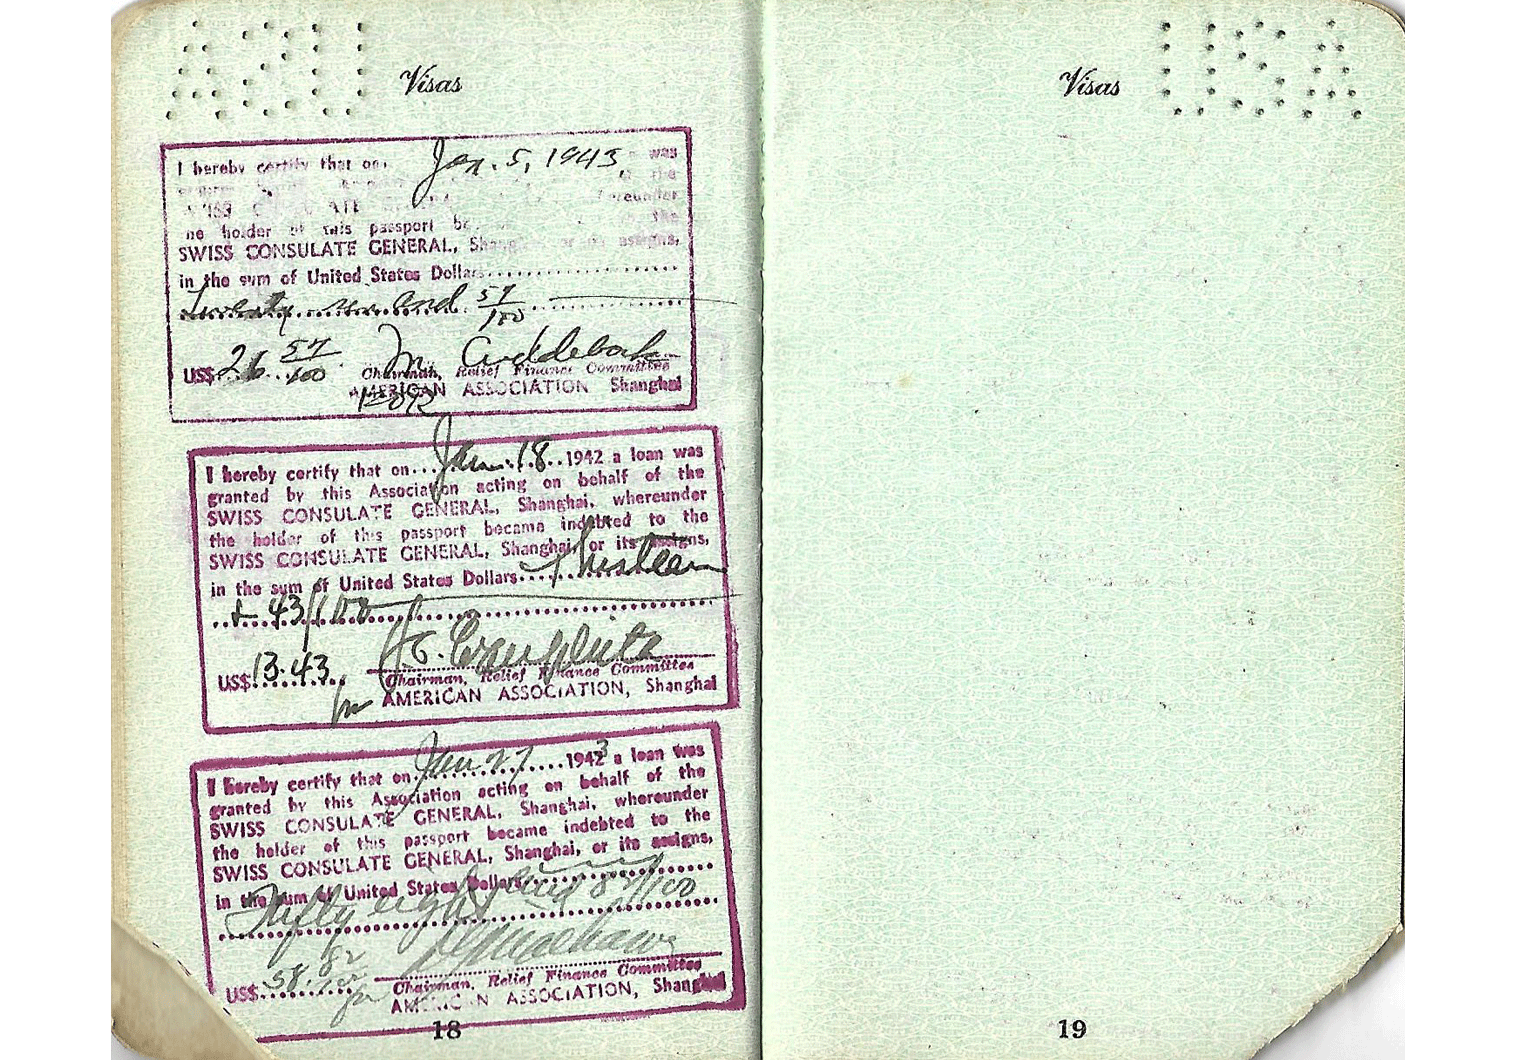 Visas
I hereby certify that on Jan. 5, 1943, was
the
hereunder
the holder of this passport
SWISS CONSULATE GENERAL, Shanghai, or its assigns,
in the sum of United States Dollars
Twenty six and 57/100
US$ 26 57/100
Chairman, Relief Finance Committee
AMERICAN ASSOCIATION Shanghai
I hereby certify that on...Jan. 18..1942 a loan was
granted by this Association acting on behalf of the
SWISS CONSULATE GENERAL, Shanghai, whereunder
the holder of this passport became indebted to the
SWISS CONSULATE GENERAL, Shanghai, or its assigns,
in the sum of United States Dollars....Thirteen
+ 43/100
US$13.43
Chairman, Relief Finance Committee
for AMERICAN ASSOCIATION, Shanghai
I hereby certify that on Jan 27 ....1943 a loan was
granted by this Association acting on behalf of the
SWISS CONSULATE GENERAL, Shanghai, whereunder
the holder of this passport became indebted to the
SWISS CONSULATE GENERAL, Shanghai, or its assigns,
in the sum of United States Dollars
Fifty eight and 82/100
US$ 58 82/100
Chairman, Relief Finance Committee
for AMERICAN ASSOCIATION, Shanghai
18
Visas
USA
19